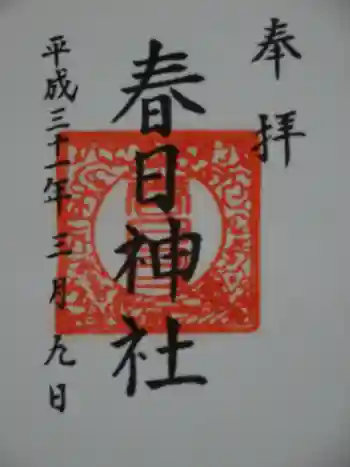 奉拝
春日神社
平成三十一年三月九日